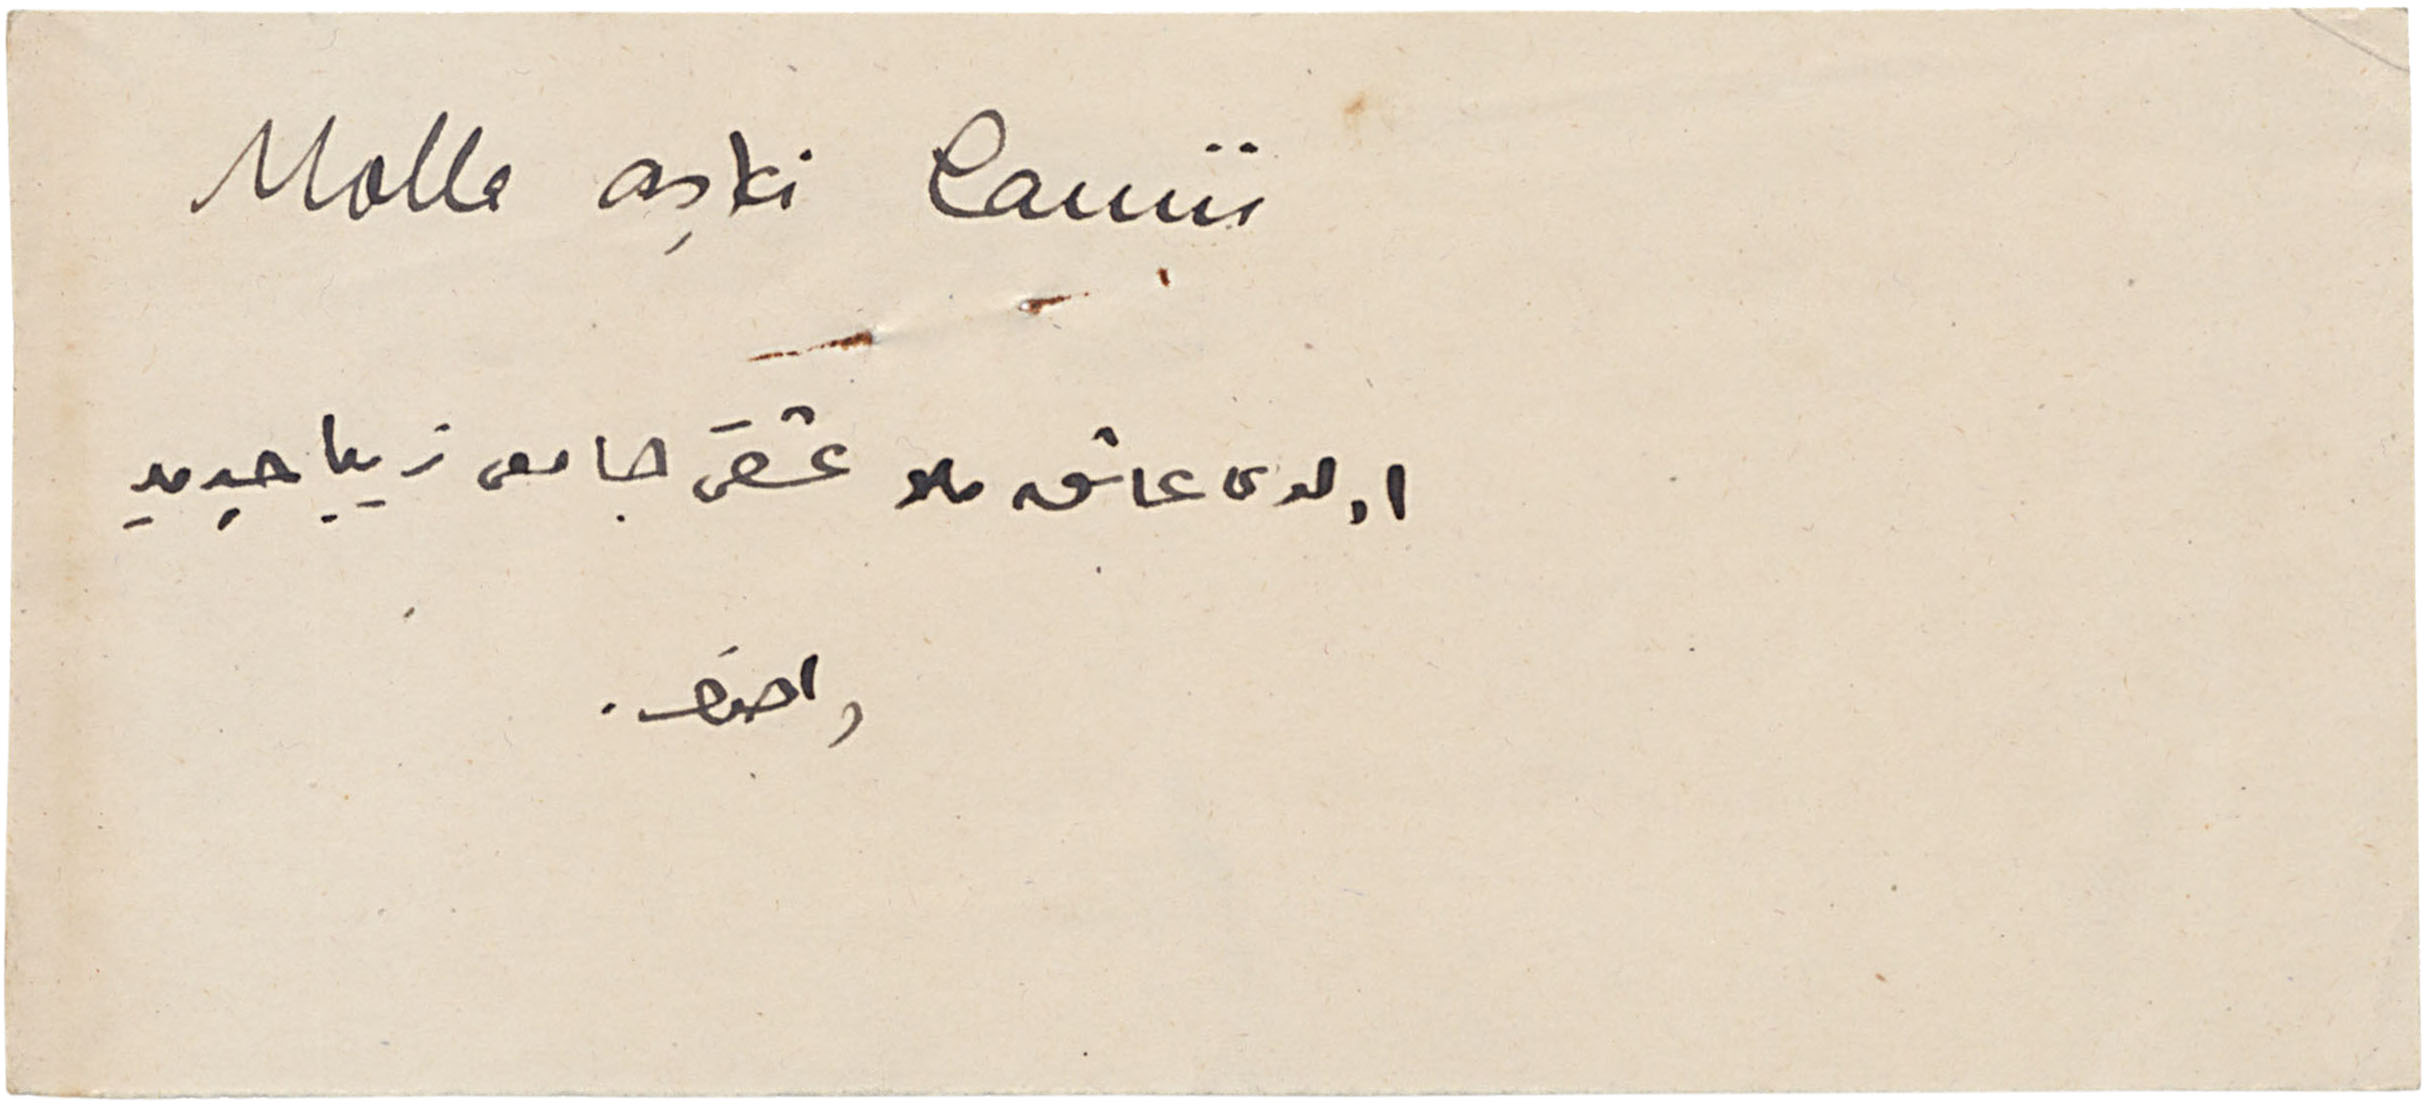 Molla aşki Camii
اولدی عاشقه ملا عشقی جامعی زیبا جدید
واصف